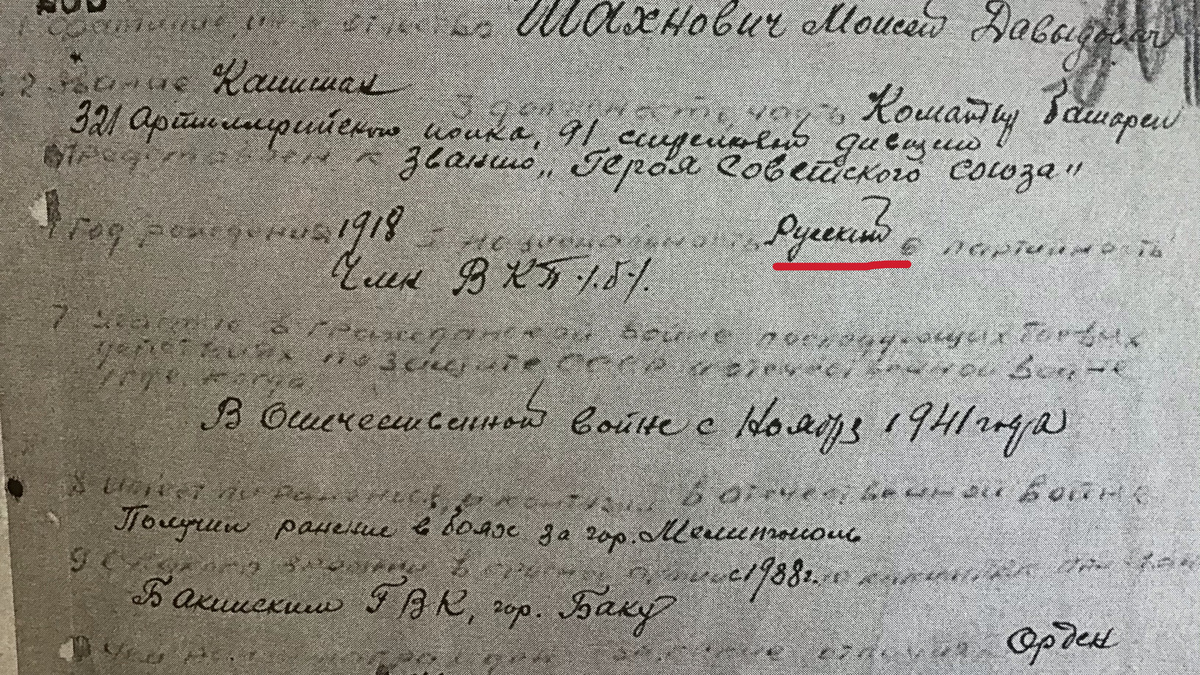 1 Фамилия, имя и отчество Шахнович Моисей Давыдович
2 Звание Капитан 3 должность, часть Командир Батареи
321 Артиллерийского полка, 91 стрелковой дивизии
Представлен к Званию „Героя Советского союза"
4 Год рождения 1918 5 национальность Русский 6 партийность
Член ВКП /.б./.
7 Участие в гражданской войне последующих боевых
действиях по защите СССР и отечественной войне
где, когда
В Отечественной войне с Ноября 1941 года
8 Имеет ли ранения и контузии в отечественной войне
Получил ранение в боях за гор. Мелитополь
9 С какого времени в с1938г.
Бакинским ГВК, гор. Баку
Чем награжден за какие отличия Орден